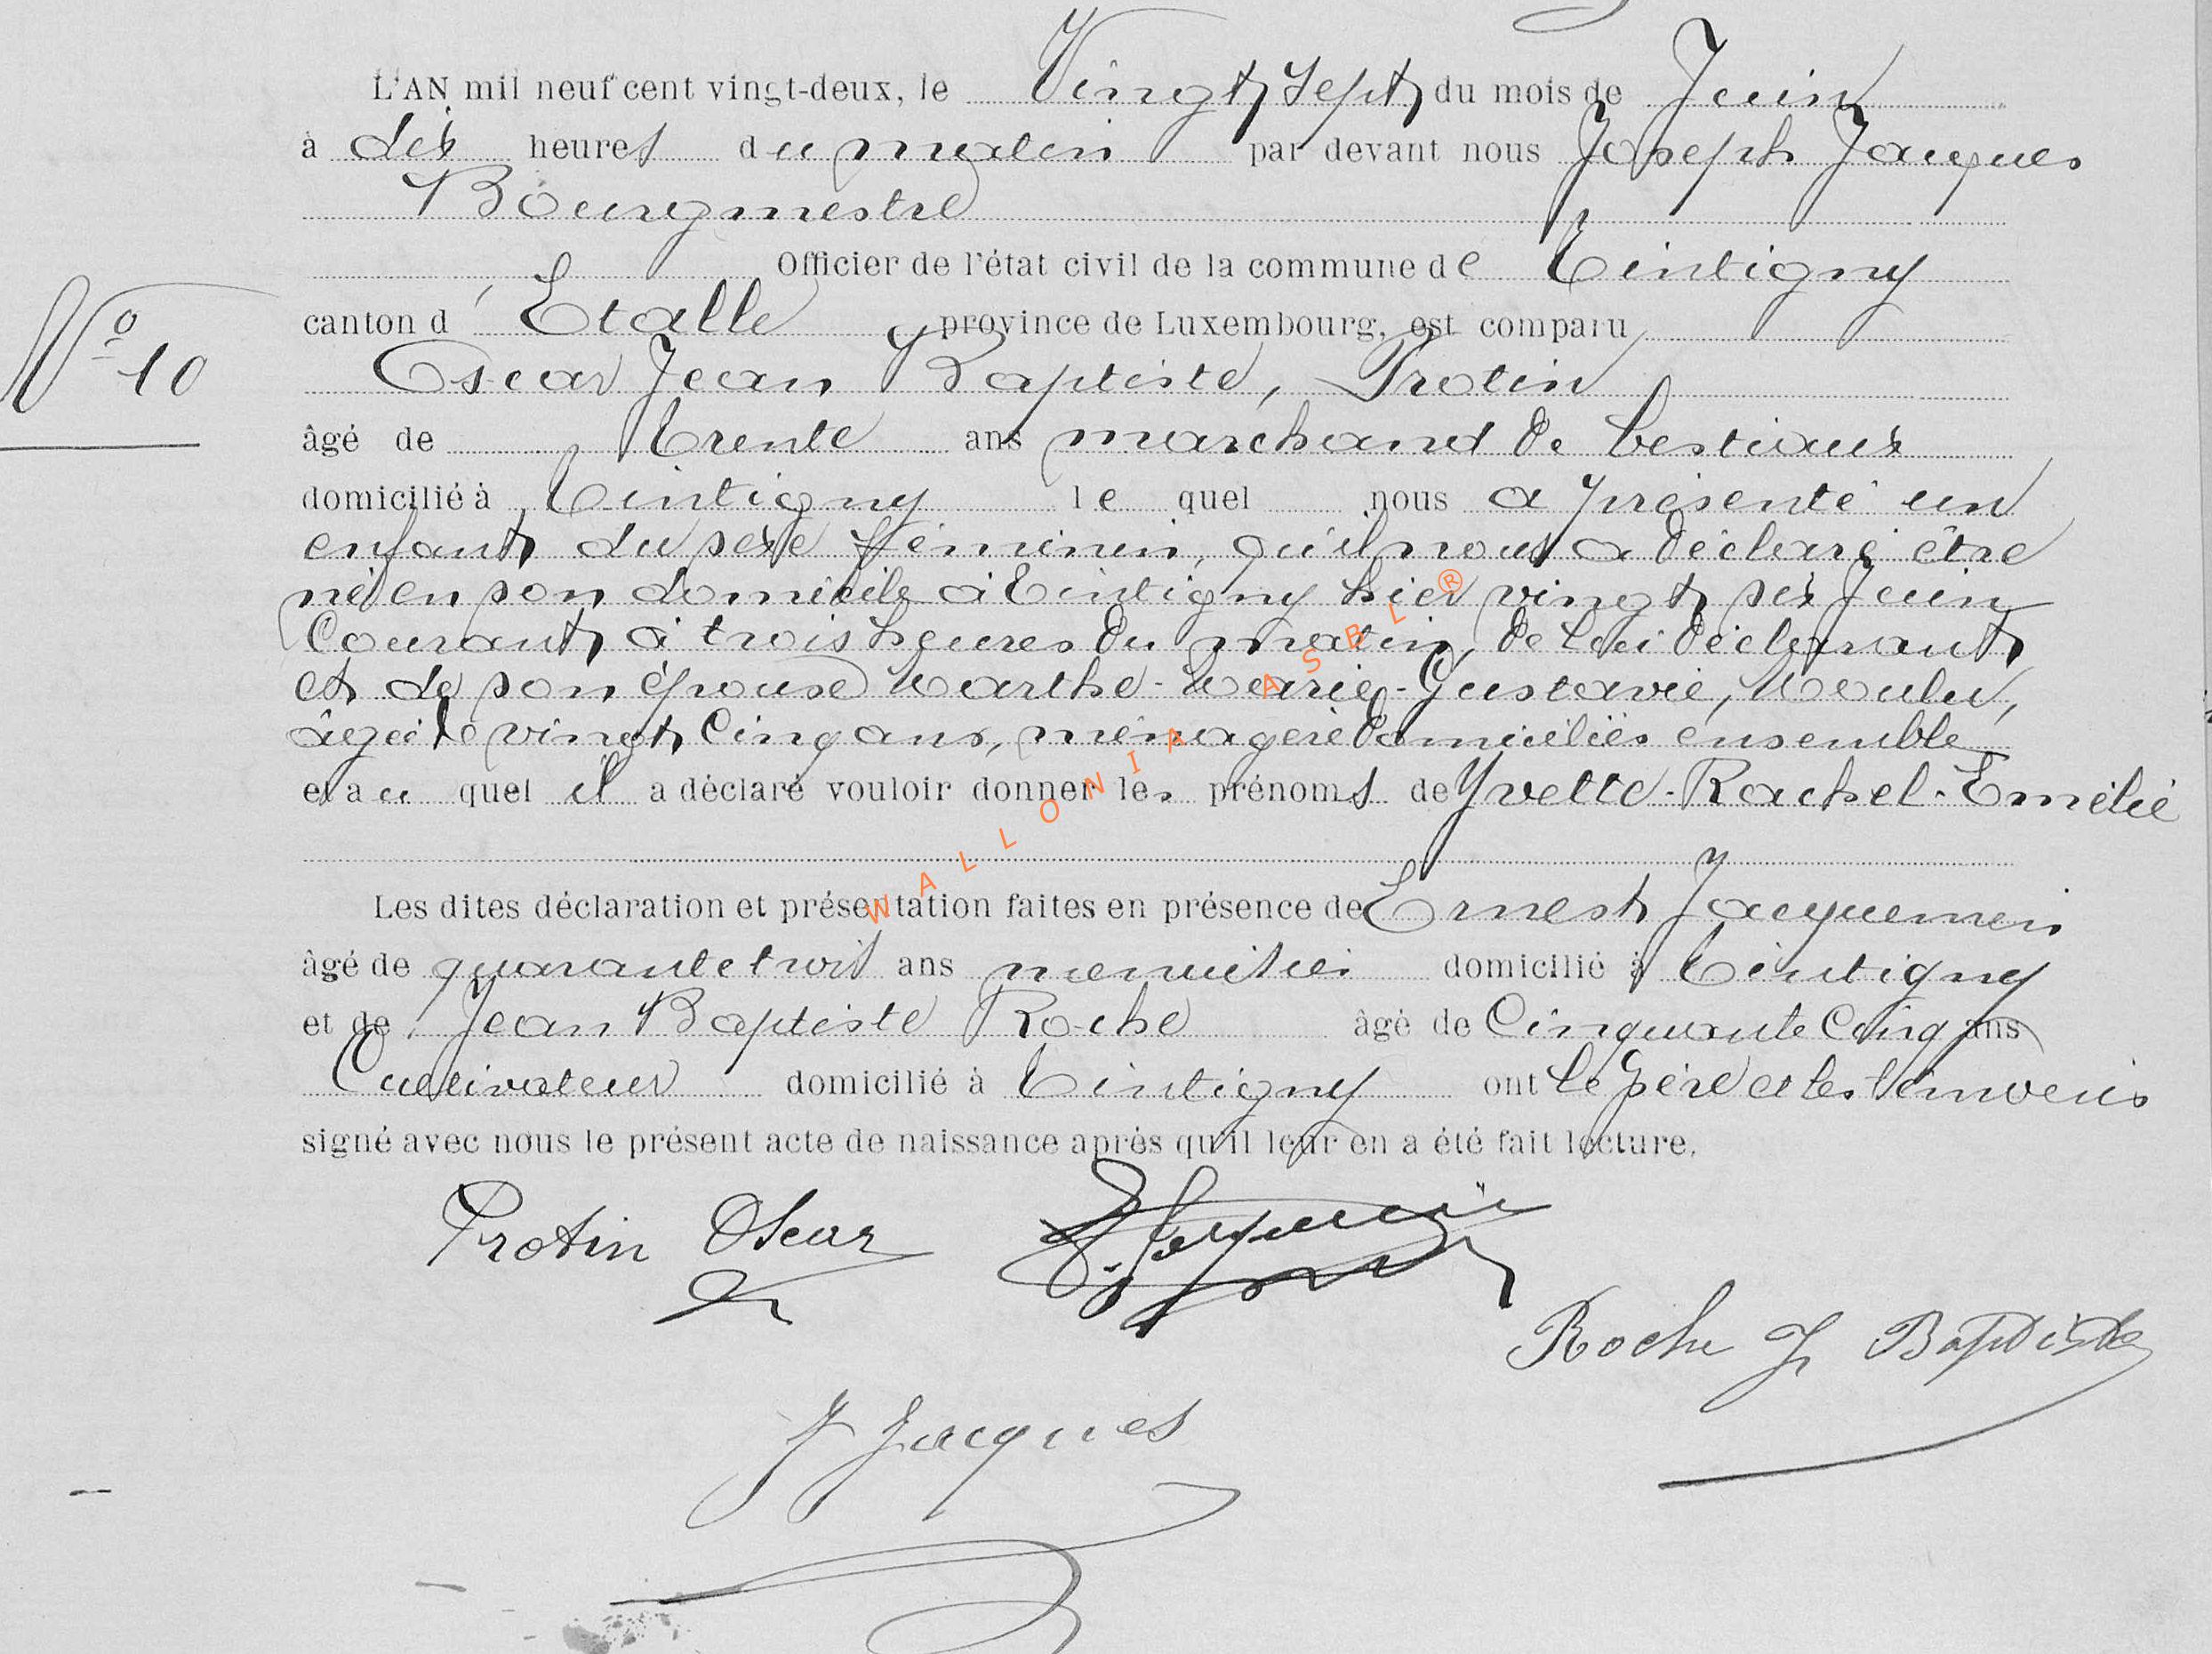 L'AN mil neuf cent vingt-deux, le Vingt Sept du mois de Juin
à dix heures du matin par devant nous Joseph Jacques
Bourgmestre
Officier de l'état civil de la commune de Tintigny
canton d' Etalle province de Luxembourg, est comparu
Nº 10
Oscar Jean Baptiste, Protin
âgé de Trente ans marchand de bestiaux
domicilié à Tintigny le quel nous a présenté un
enfant du sexe féminin, qu'il nous a déclaré être
né en son domicile à Tintigny hier vingt six Juin
Courant à trois heures du matin, de lui déclarant
et de son épouse Marthe-Marie-Gustavie, Moulu,
âgée de vingt Cinq ans, ménagère domiciliés ensemble
et au quel il a déclaré vouloir donner les prénoms de Yvette-Rachel-Emélie
Les dites déclaration et présentation faites en présence de Ernest Jacquemin
âgé de quarante trois ans menuisier domicilié à Tintigny
et de Jean Baptiste Roche âgé de Cinquante Cinq ans
Cultivateur domicilié à Tintigny ont le père et les témoins
signé avec nous le présent acte de naissance après qu'il leur en a été fait lecture.
Protin Oscar E. Jacquemin
Roche J Baptiste
J Jacques
WALLONIA ASBL ®